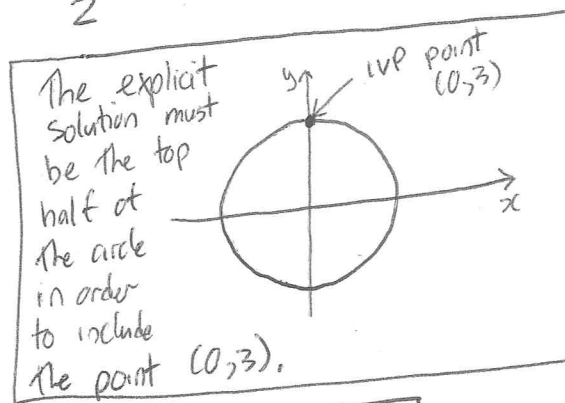 2
The explicit
solution must
be the top
half of
the circle
in order
to include
the point (0,3).
y
IVP point
(0,3)
x